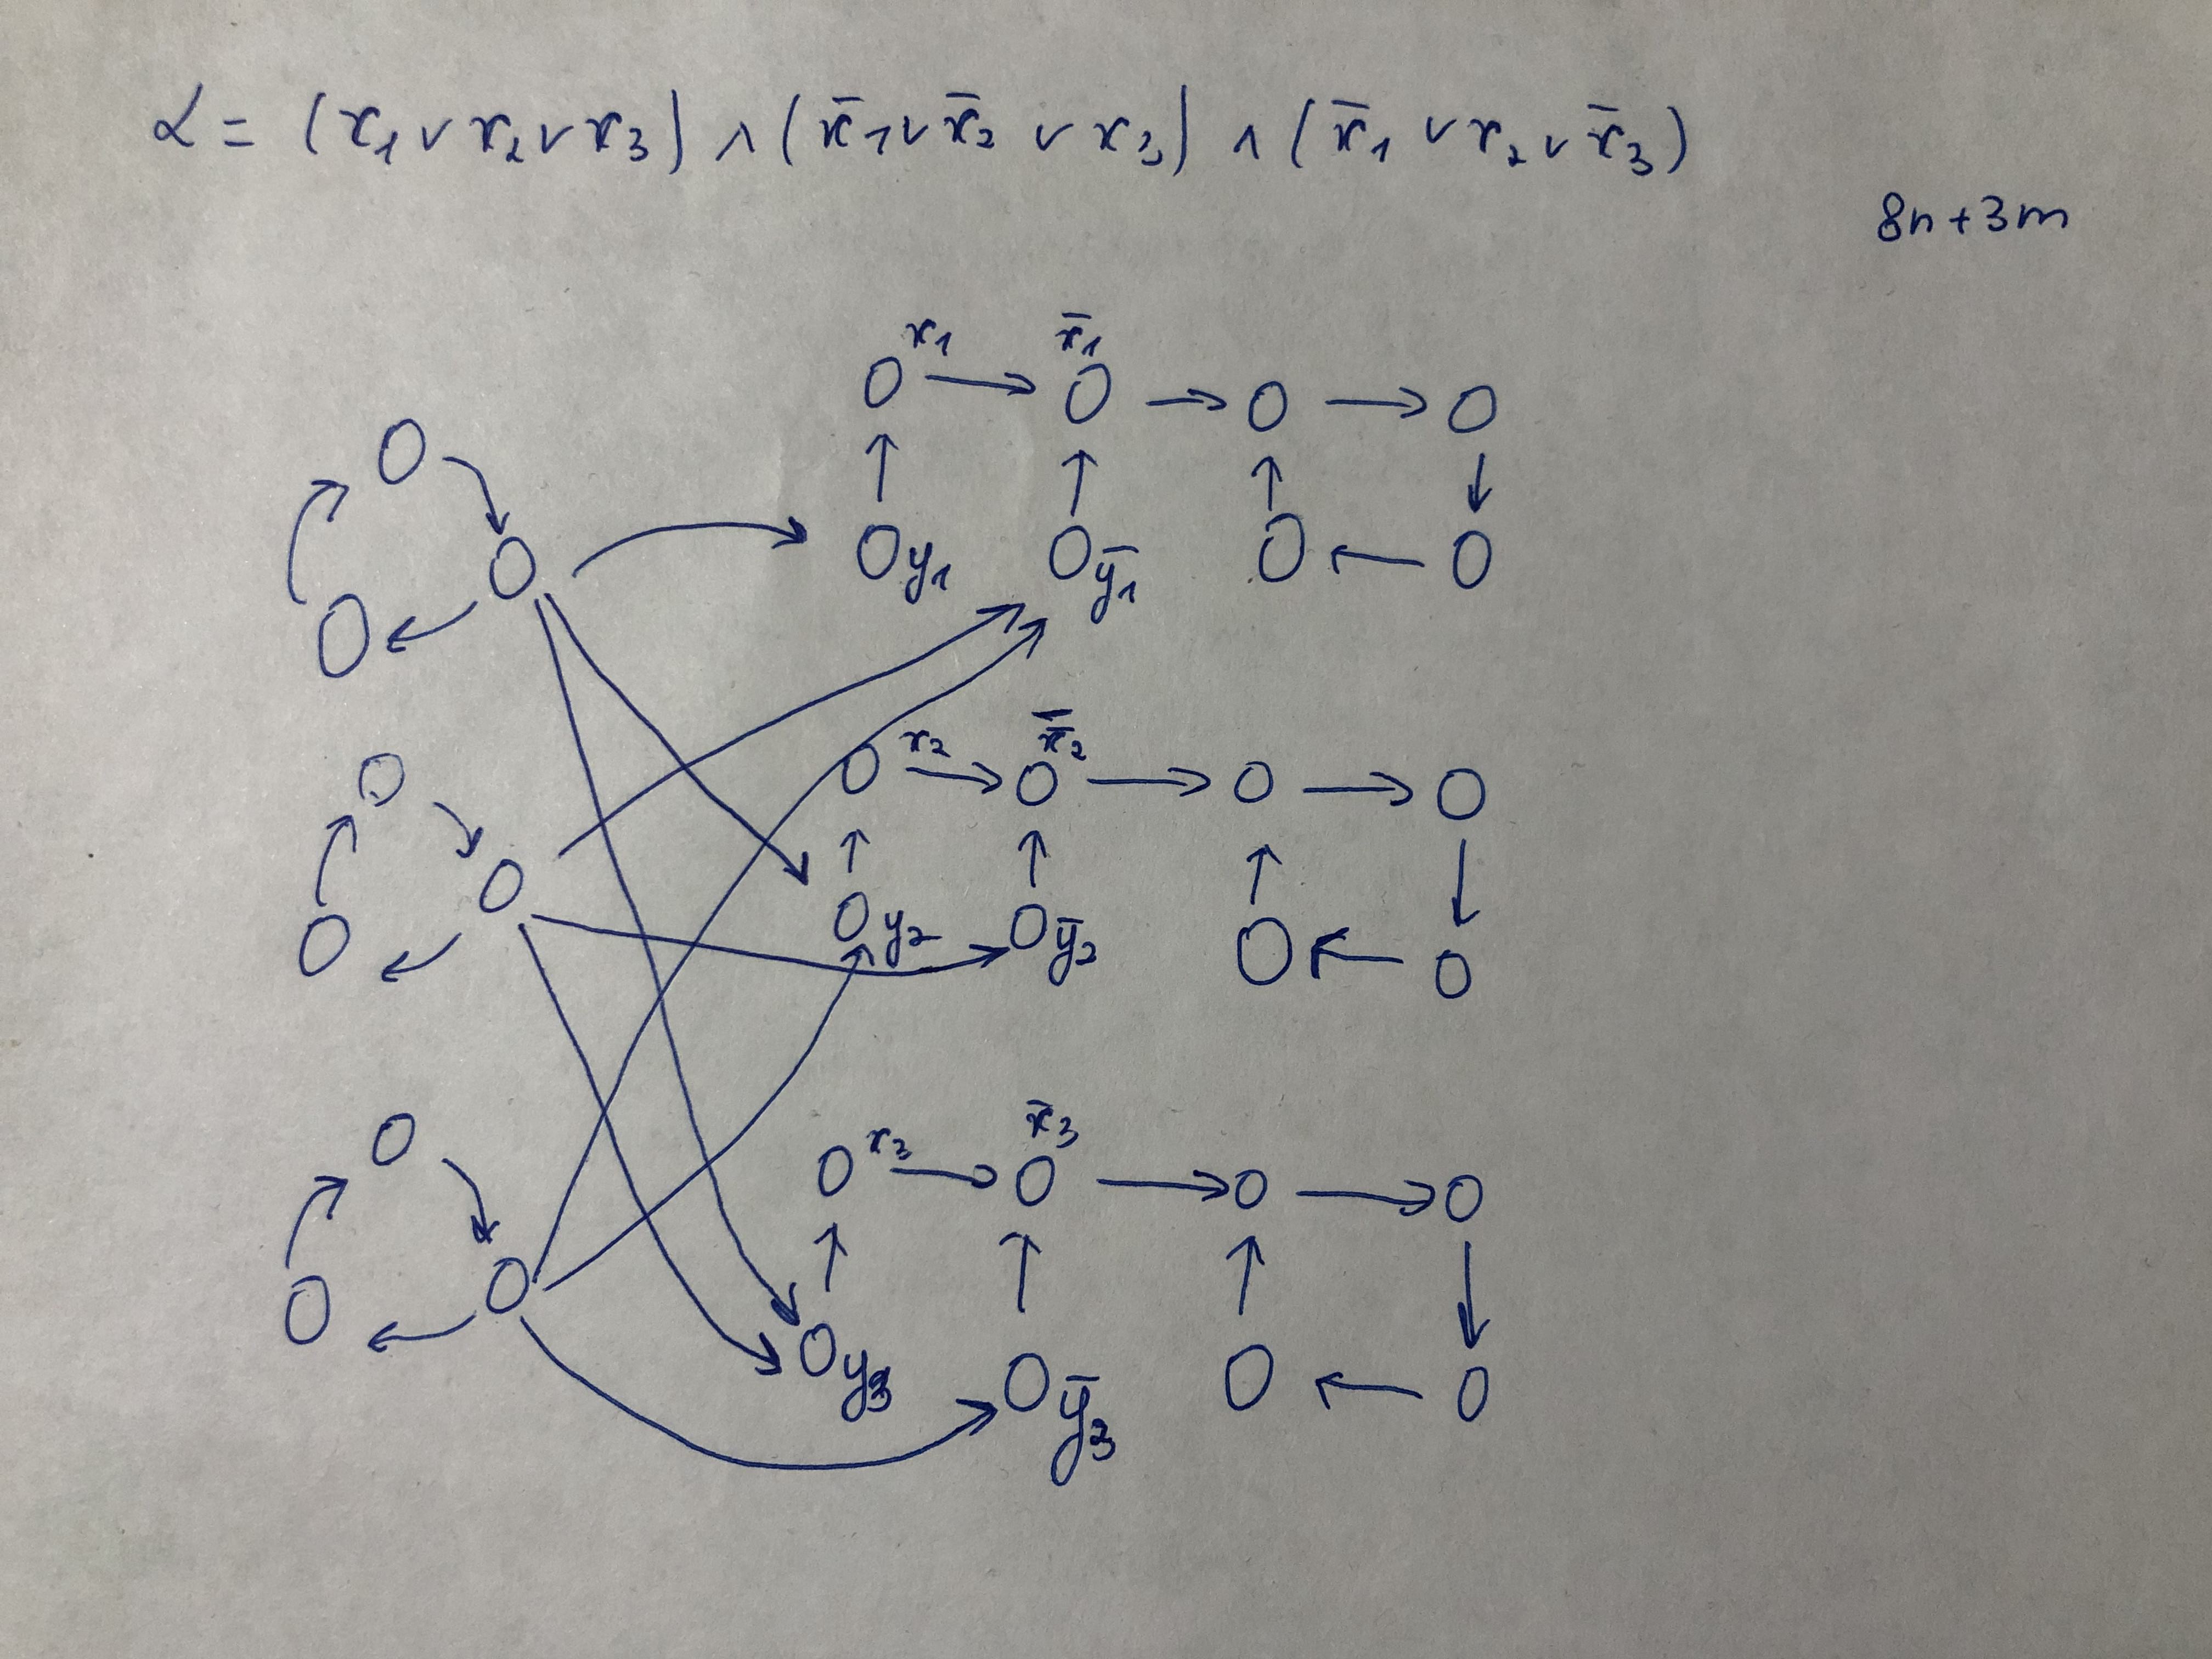 α = (x₁ ∨ x₂ ∨ x₃) ∧ (x̄₁ ∨ x̄₂ ∨ x₃) ∧ (x̄₁ ∨ x₂ ∨ x̄₃)
8n + 3m
x₁ x̄₁
y₁ ȳ₁
x₂ x̄₂
y₂ ȳ₂
x₃ x̄₃
y₃ ȳ₃